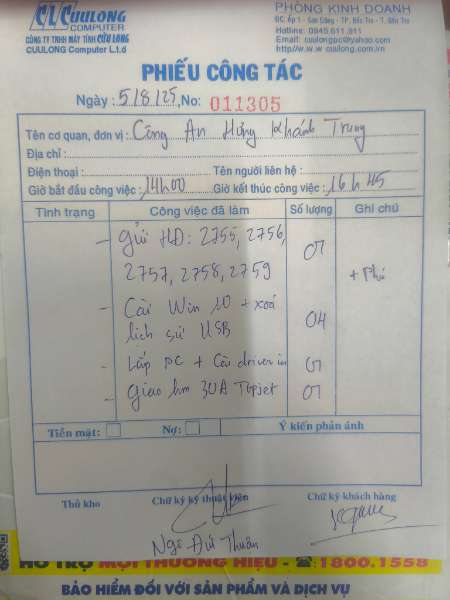 CL CUULONG
COMPUTER
CÔNG TY TNHH MÁY TÍNH CỬU LONG
CUULONG Computer L.t.d
PHÒNG KINH DOANH
Hotline: 0945.611.911
Email: cuulongpc@yahoo.com
http://w.w.w cuulong.com.vn
PHIẾU CÔNG TÁC
Ngày: 5/8/25, No: 011305
Tên cơ quan, đơn vị: Công An Hưng Khánh Trung
Địa chỉ:
Điện thoại: Tên người liên hệ:
Giờ bắt đầu công việc: 14h00 Giờ kết thúc công việc: 16h45
Tình trạng Công việc đã làm Số lượng Ghi chú
- Gửi HĐ: 2755, 2756,
2757, 2758, 2759
- Cài Win 10 + xoá 04
lịch sử USB
- Lắp PC + Cài driver in
- Giao hm 30A
Tiền mặt: Nợ: Ý kiến phản ánh
Thủ kho Chữ ký kỹ thuật viên Chữ ký khách hàng
Đức Thuân
HỖ TRỢ MỌI THƯƠNG HIỆU - 1800.1558
BẢO HIỂM ĐỐI VỚI SẢN PHẨM VÀ DỊCH VỤ